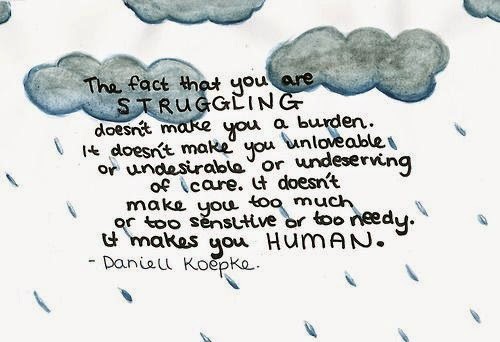 The fact that you are
STRUGGLING
doesn't make you a burden.
It doesn't make you unloveable
or undesirable or undeserving
of care. It doesn't
make you too much
or too sensitive or too needy.
It makes you HUMAN.
- Daniell Koepke.